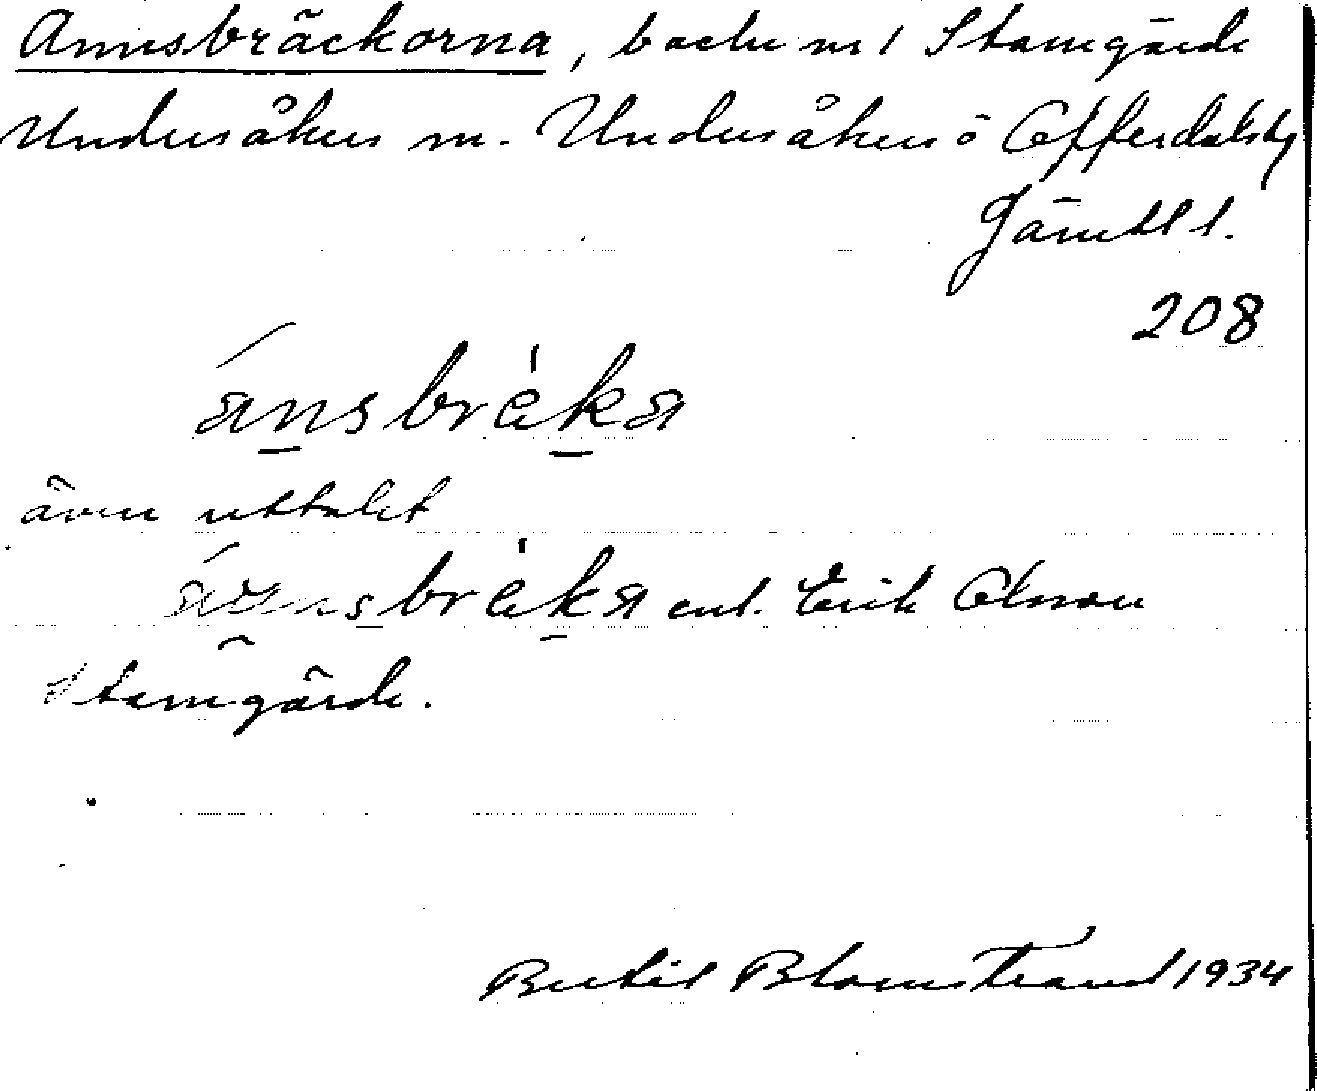 Annsbräckorna, backe nr 1 Stamgärde
Undersåkers sn. Undersåkers o Offerdals tg
Jämtl l.
208
ánsbrèka
även uttalet
ánsbrèka enl. Erik Olsson
Stamgärde.
Bertil Blomstrand 1934